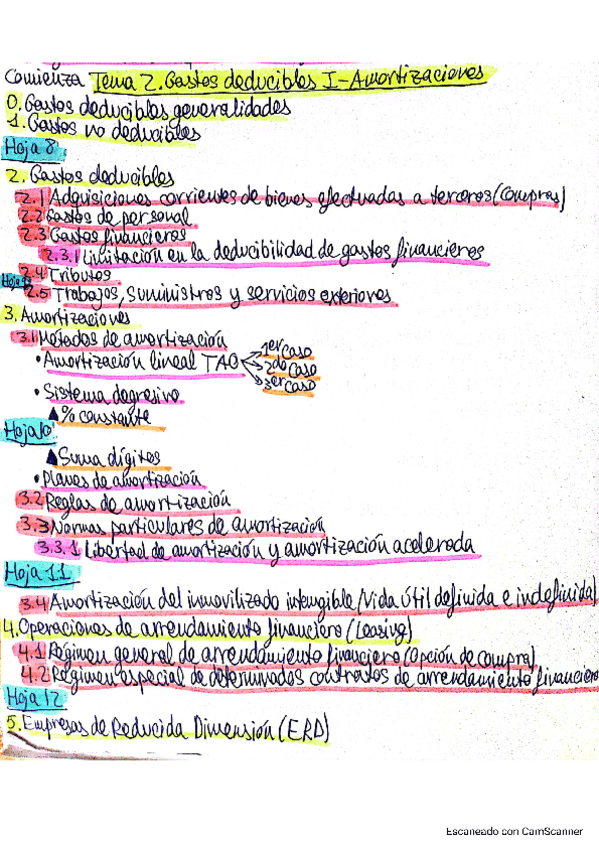 Comienza Tema 2. Gastos deducibles I-Amortizaciones
0. Gastos deducibles generalidades
1. Gastos no deducibles
Hoja 8
2. Gastos deducibles
2.1 Adquisiciones corrientes de bienes efectuadas a terceros (Compras)
2.2 Gastos de personal
2.3 Gastos financieros
2.3.1 Limitación en la deducibilidad de gastos financieros
2.4 Tributos
Hoja
2.5 Trabajos, suministros y servicios exteriores
3. Amortizaciones
3.1 Métodos de amortización
• Amortización lineal TAO
1er caso
2do caso
3er caso
• Sistema degresivo
▲ % constante
Hoja 10:
▲ Suma dígitos
• Planes de amortización
3.2 Reglas de amortización
3.3 Normas particulares de amortización
3.3.1 Libertad de amortización y amortización acelerada
Hoja 11
3.4 Amortización del inmovilizado intangible (Vida útil definida e indefinida)
4. Operaciones de arrendamiento financiero (Leasing)
4.1 Régimen general de arrendamiento financiero (opción de compra)
4.2 Régimen especial de determinados contratos de arrendamiento financiero
Hoja 12
5. Empresas de Reducida Dimensión (ERD)
Escaneado con CamScanner